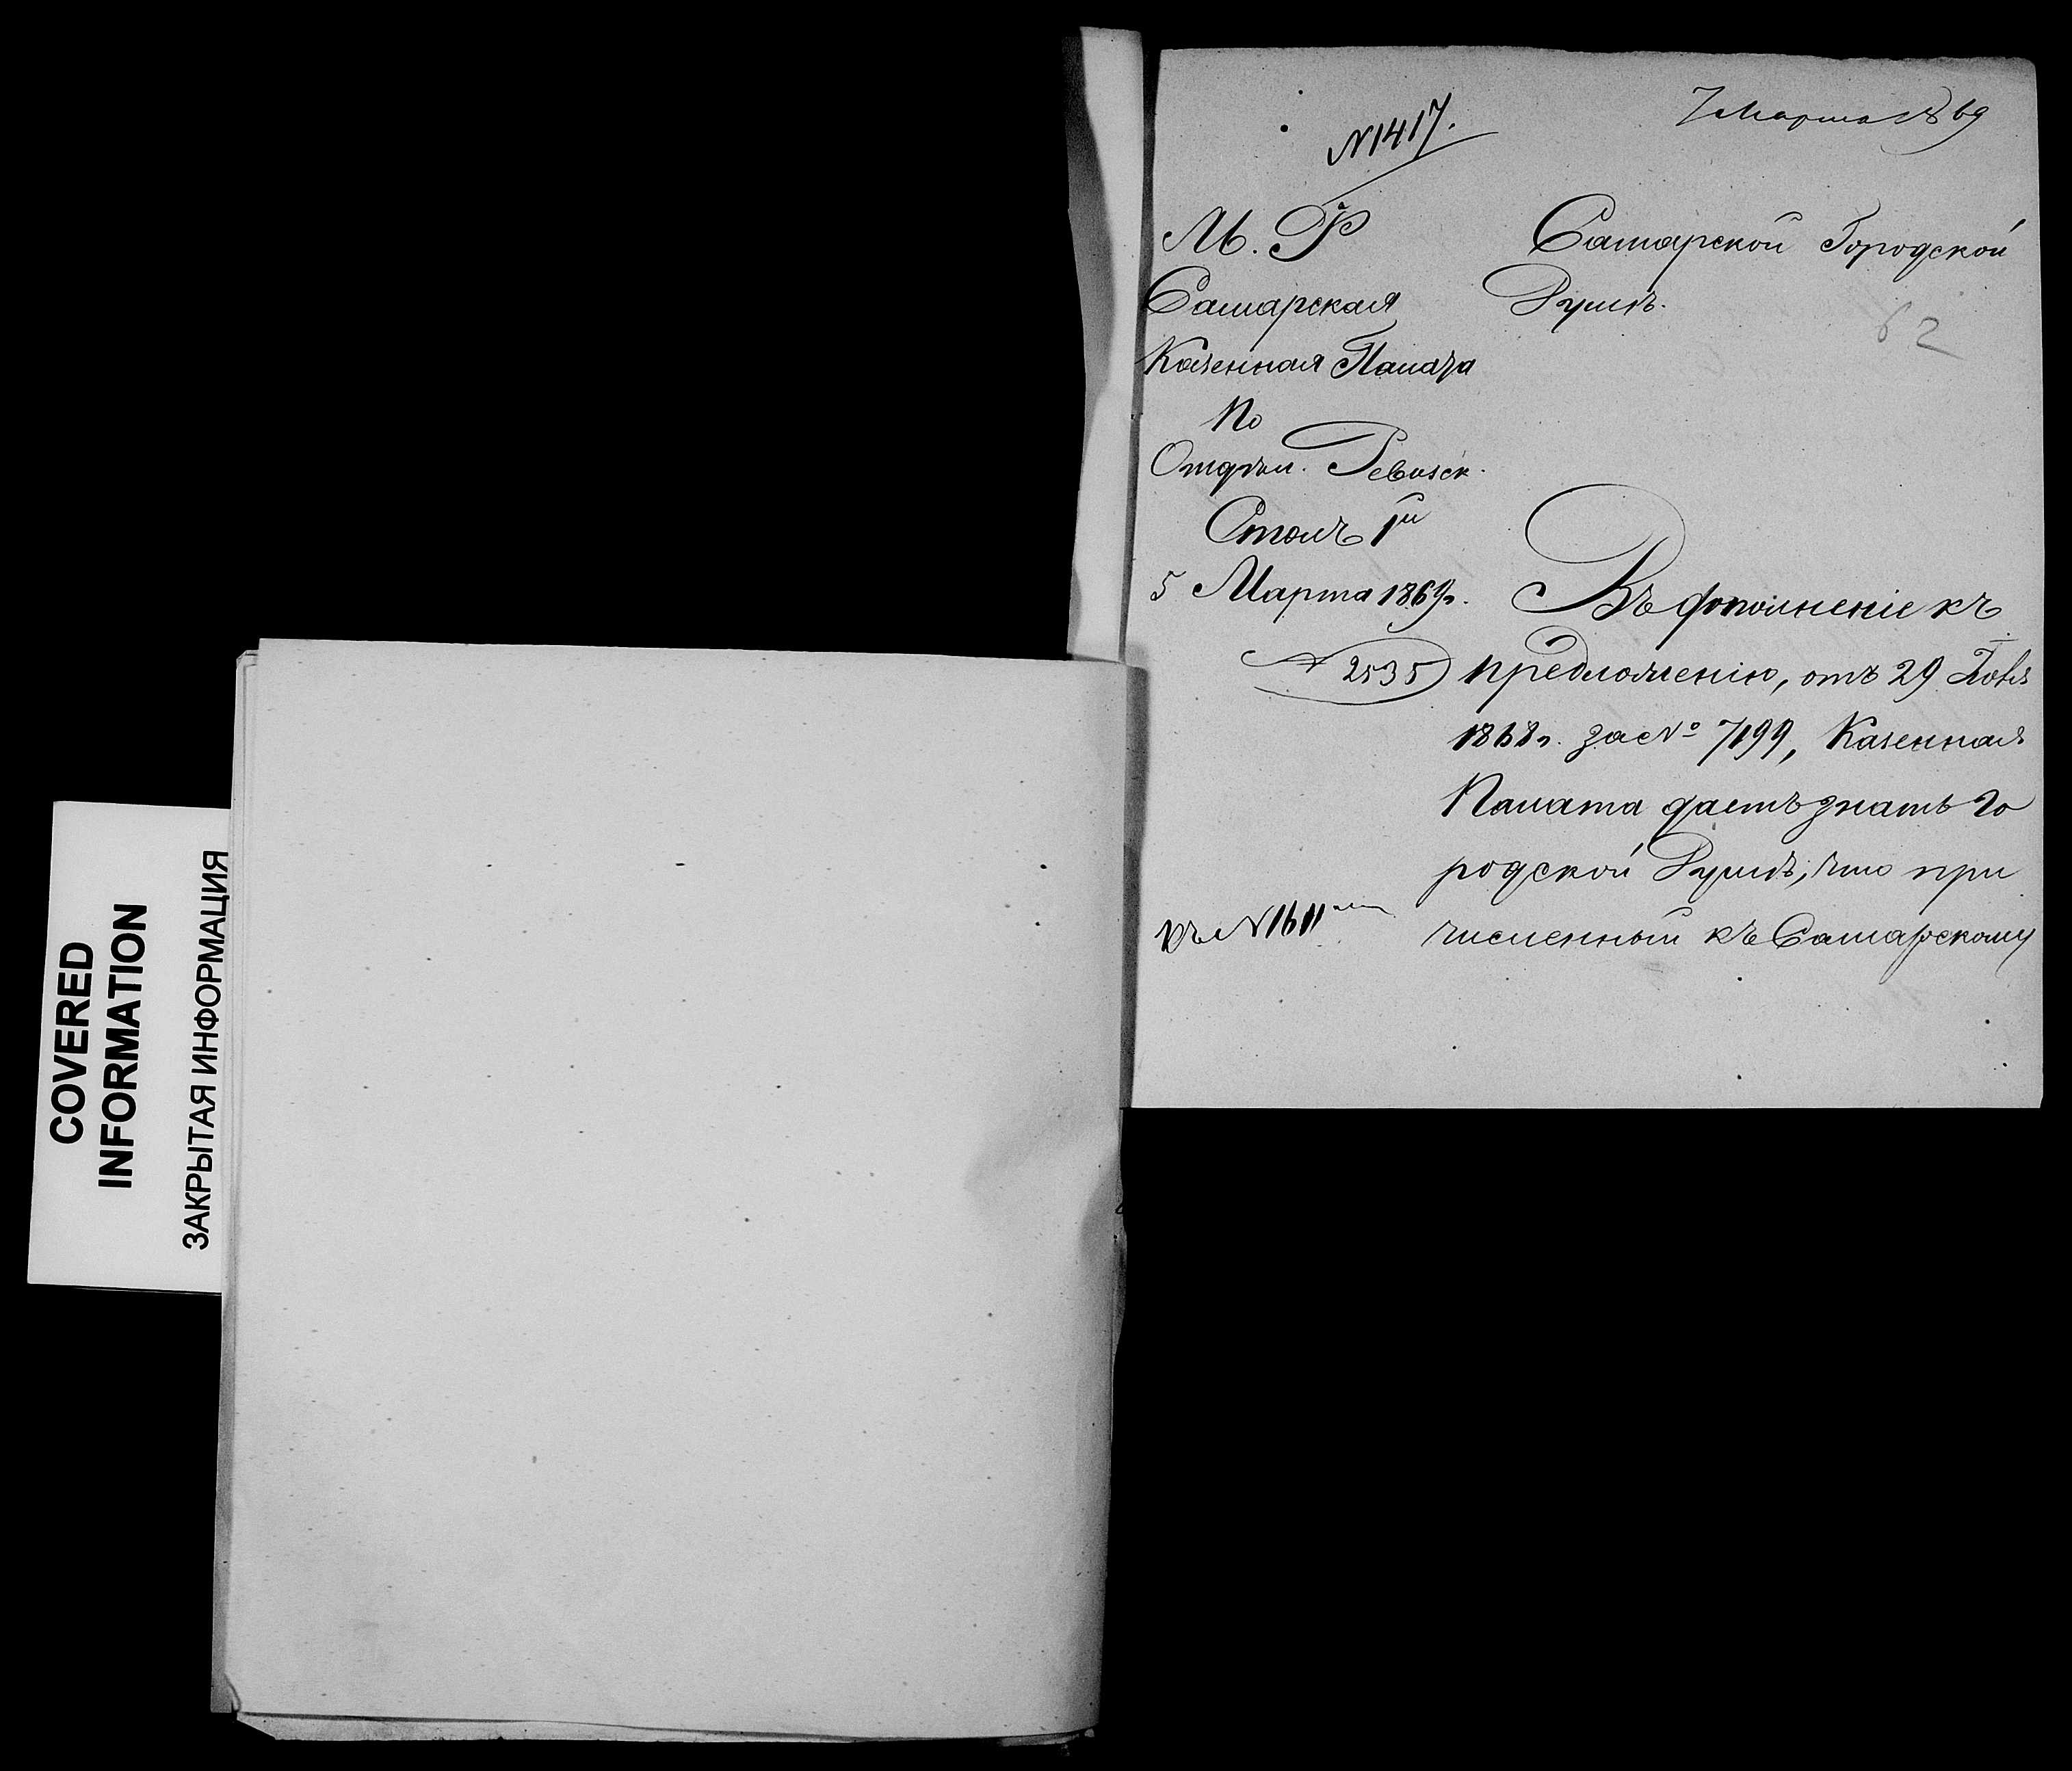 COVERED
INFORMATION
ЗАКРЫТАЯ ИНФОРМАЦИЯ
N 1417.
7 Марта 1869
М. Ф
Самарская
Казенная Палата
По
Отдѣл. Ревизск.
Столъ 1й
5 Марта 1869г.
№ 2535
къ N 1611
Самарской Городской
Думѣ.
62
Въ дополненіе къ
предложенію, отъ 29 Ноября
1868г. за № 7199, Казенная
Палата даетъ знать Го
родской Думѣ, что при
численный къ Самарскому